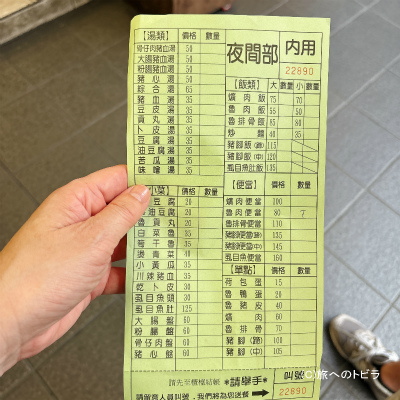 夜間部
內用
22890
【湯類】 價格 數量
骨仔肉豬血湯 50
大腸豬血湯 50
粉腸豬血湯 50
豬心湯 50
綜合湯 65
豬血湯 35
豆皮湯 35
貢丸湯 35
卜皮湯 35
豆腐湯 35
油豆腐湯 35
苦瓜湯 35
味噌湯 35
【飯類】 大 數量 小 數量
爌肉飯 75 70
魯肉飯 55 50
魯排骨飯 85 80
炒麵 40 35
豬腳飯(蹄) 115
豬腳飯(中) 120
虱目魚肚飯 135
【小菜】 價格 數量
豆腐 20
油豆腐 20
魯貢丸 20
白菜魯 35
筍干魯 35
燙青菜 40
小黃瓜 35
川辣豬血 35
乾卜皮 30
虱目魚頭 30
虱目魚肚 125
大腸盤 60
粉腸盤 60
骨仔肉盤 60
豬心盤 60
【便當】 價格 數量
爌肉便當 100
魯肉便當 80 7
魯排骨便當 110
豬腳便當(蹄) 135
豬腳便當(中) 145
虱目魚便當 160
【單點】 價格 數量
荷包蛋 15
魯鴨蛋 20
魯豬皮 40
爌肉 60
魯排骨 70
豬腳(蹄) 100
豬腳(中) 105
請先至櫃檯結帳 *請舉手*
請留意人員叫號，我們將為您送餐
叫號
22890
(C)旅へのトビラ